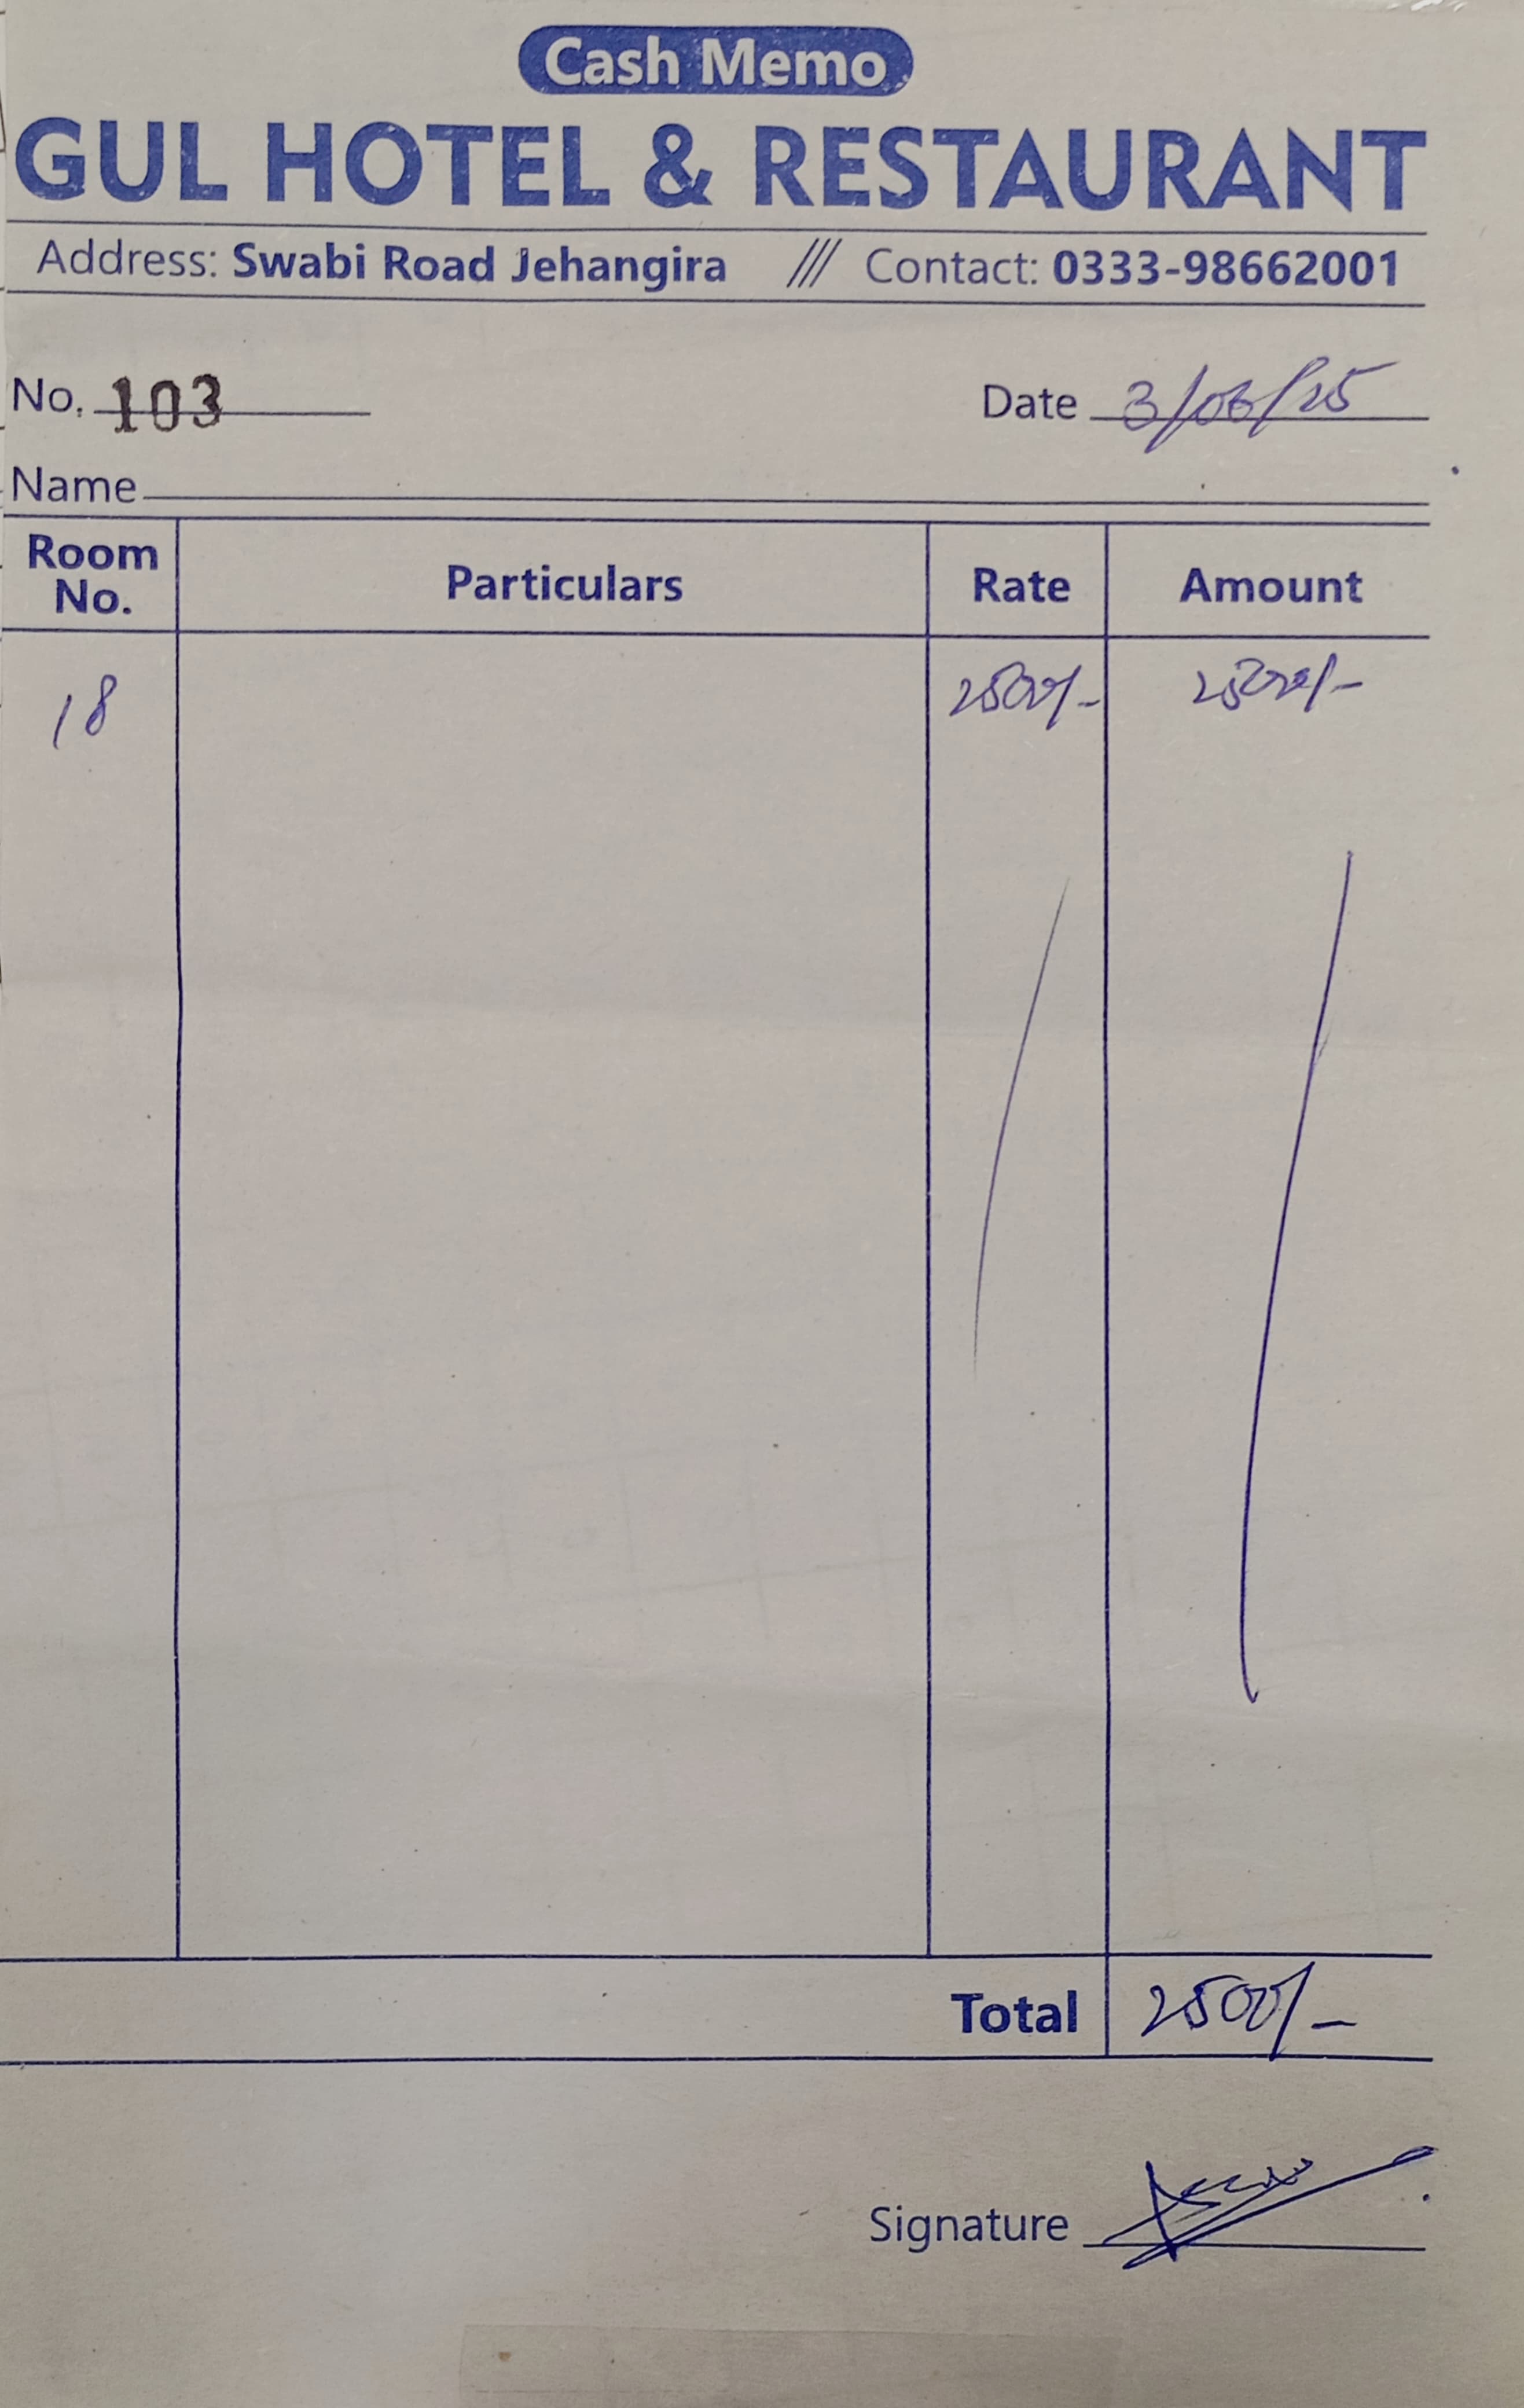 Cash Memo
GUL HOTEL & RESTAURANT
Address: Swabi Road Jehangira /// Contact: 0333-98662001
No. 103 Date 3/06/25
Name
Room No. Particulars Rate Amount
18 2500/- 2500/-
Total 2500/-
Signature